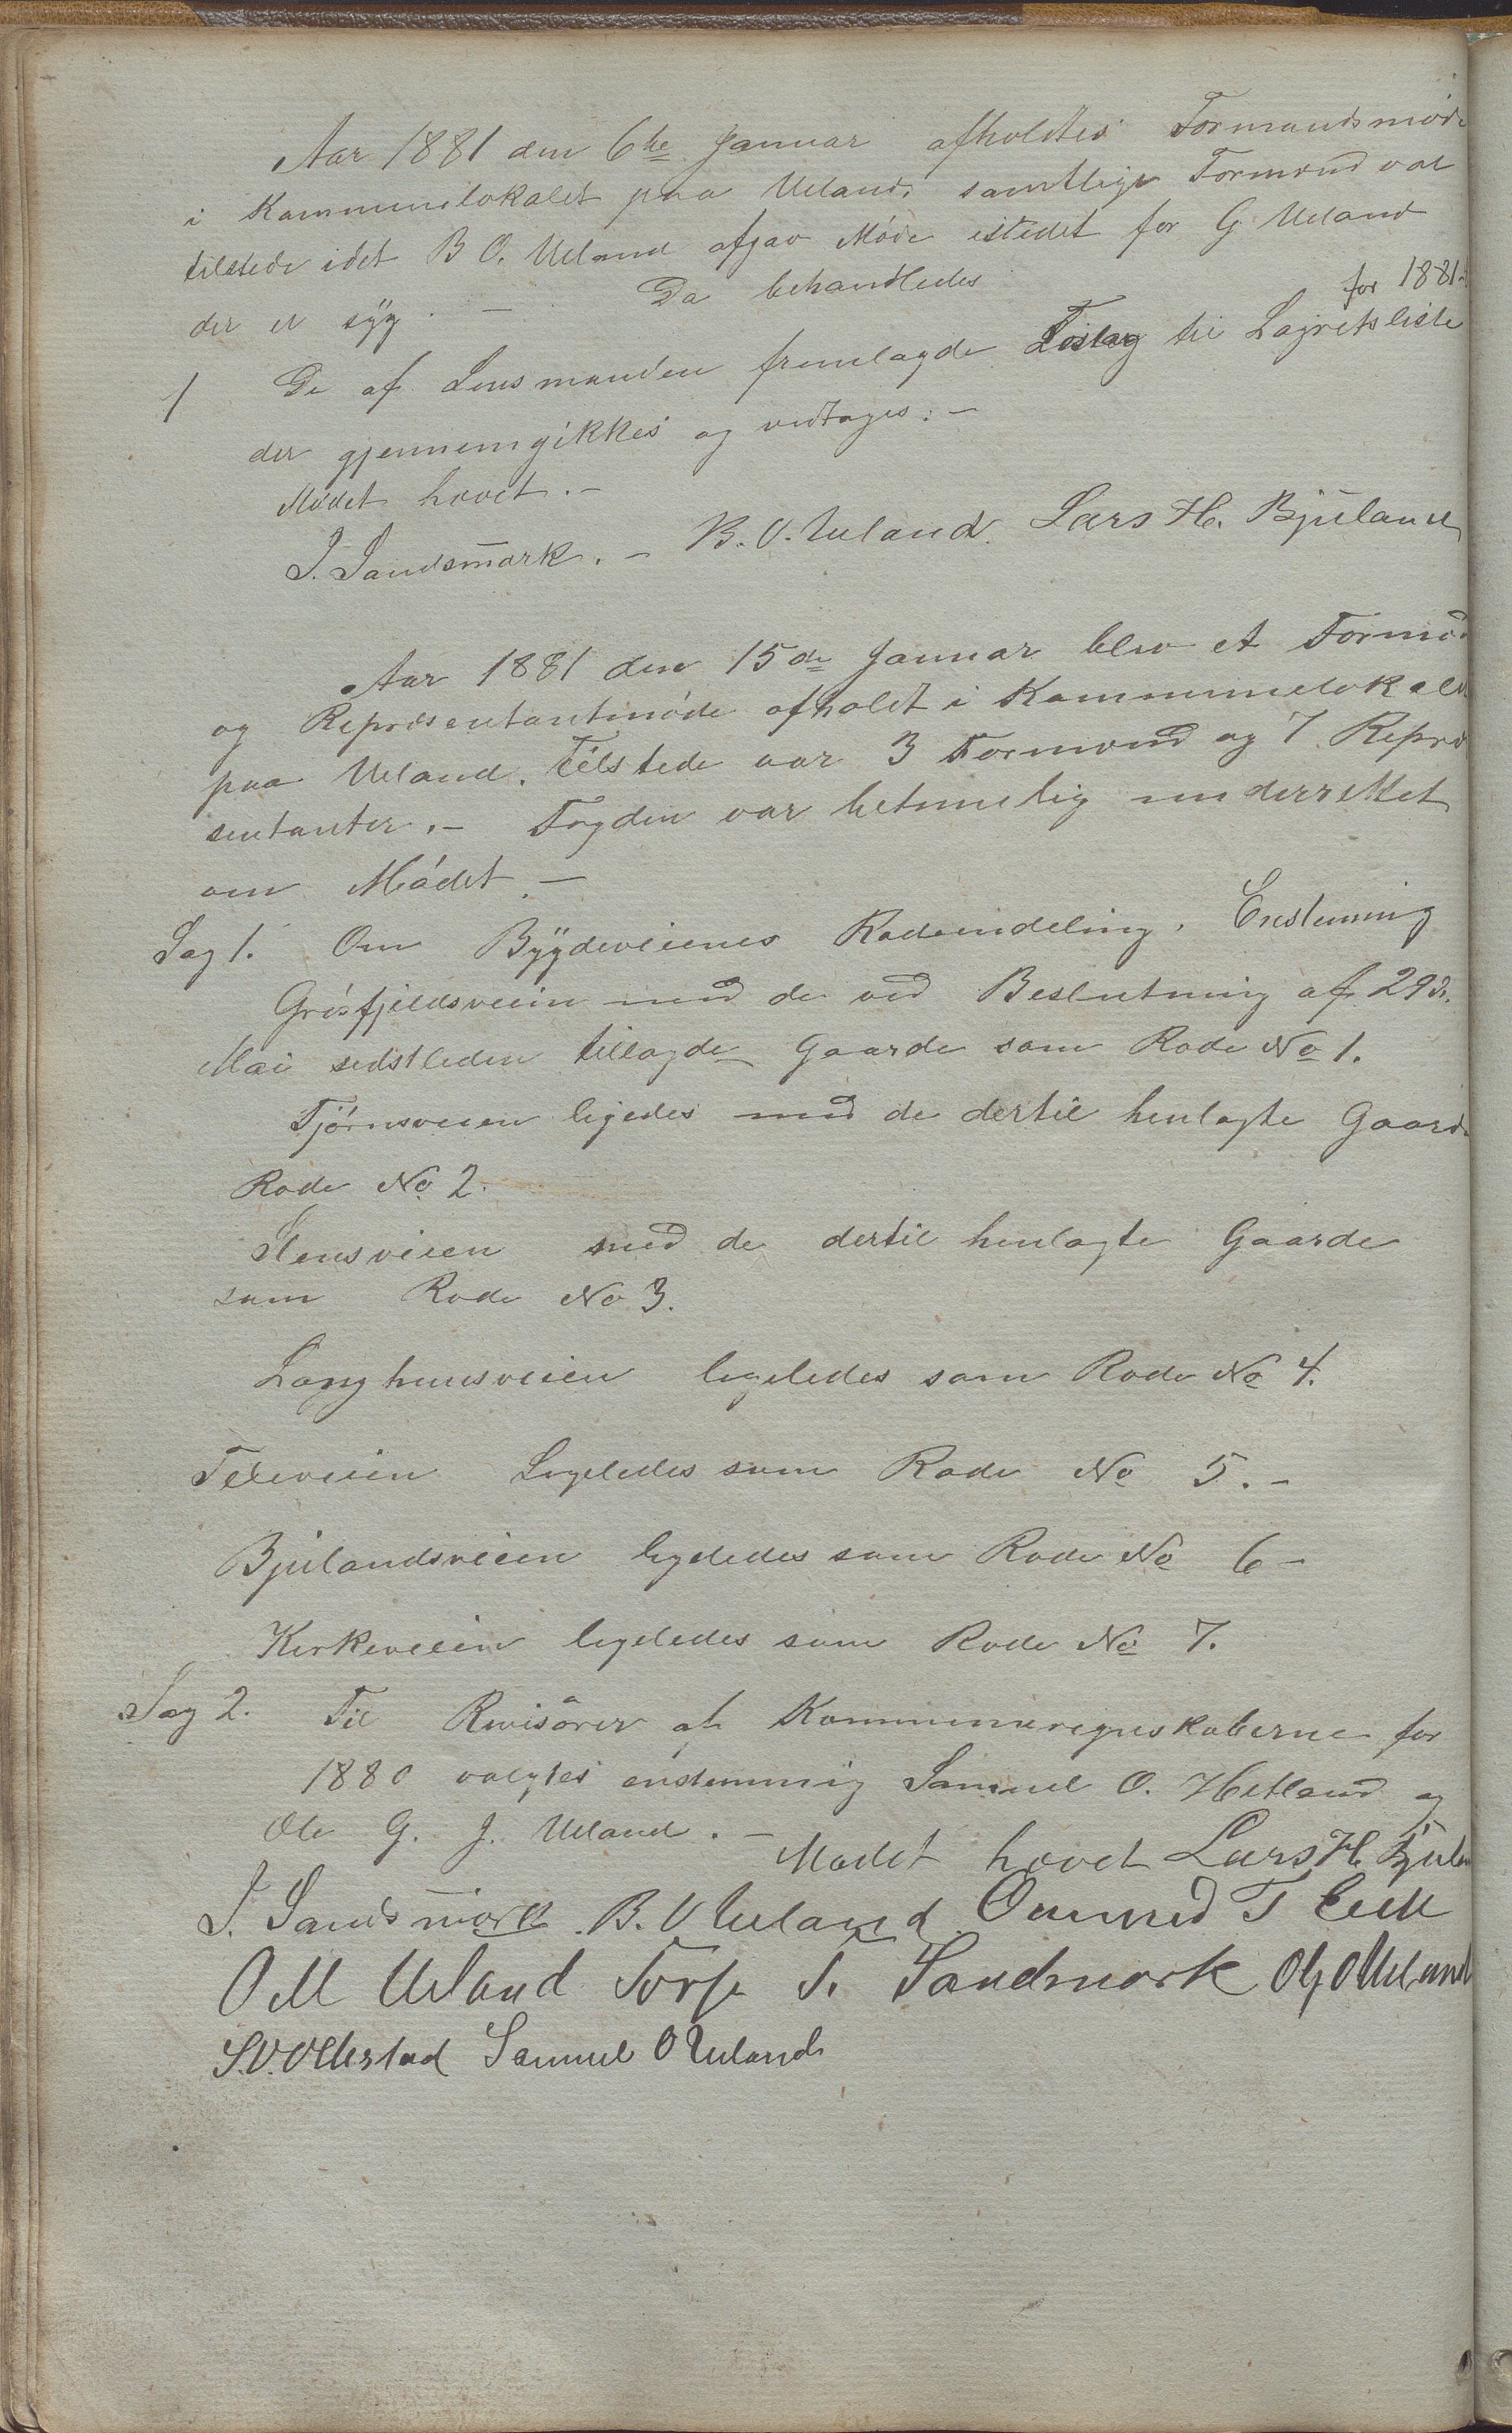 Aar 1881 den 6te Januar afholdtes Formandsmøde
i Kommunelokalet paa Ueland, samtlige Formænd var
tilstede idet B O. Ueland afgav Møde istedet for G Ueland
der er syg. – Da behandledes
for 1881
1 De af Lensmanden fremlagde Forslag til Lagretsliste
der gjennemgikkes og vedtages. –
Mødet hævet. –
J. Sandsmark. – B. O. Ueland. Lars H. Bjuland
Aar 1881 den 15de Januar blev et Formd
og Repræsentantmøde afholdt i Kommunelokalet
paa Ueland. Tilstede var 3 Formænd og 7 Repræ
sentanter. – Fogden var betimelig underrettet
om Mødet. –
Sag 1. Om Bygdeveienes Rodeindeling. Enstemmig
Grøsfjeldsveien med de ved Beslutning af 29de
Mai sidstleden tillagde Gaarde som Rode No 1.
Tjørnsveien ligedes med de dertil henlagte Gaarde
Rode No 2.
Stensveien med de dertil henlagte Gaarde
som Rode No 3.
Langhusveien ligeledes som Rode No 4.
Televeien Ligeledes som Rode No 5. –
Bjulandsveien ligeledes som Rode No 6 –
Kirkeveien ligeledes som Rode No 7.
Sag 2. Til Revisorer af Kommuneregnskaberne for
1880 valgtes enstemmig Samuel O. Hetland og
Ole G. J. Ueland. – Mødet hævet Lars H. Bjulan
J. Sandsmark B. O Ueland Ommund T Eeik
O M Ueland Torje T. Sandsmork O G O Ueland
S. O. Ollestad Samuel O Ueland